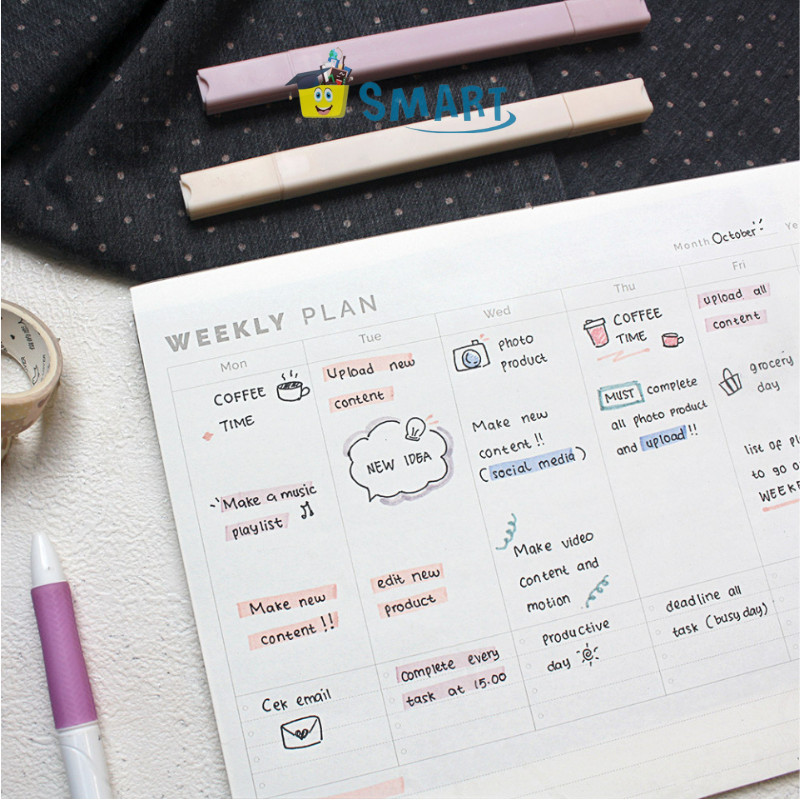 SMART
Month October
WEEKLY PLAN
Mon
COFFEE
TIME
Make a music
playlist
Make new
content!!
Cek email
Tue
Upload new
content
NEW IDEA
edit new
product
Complete every
task at 15.00
Wed
photo
product
Make new
content!!
(social media)
Make video
content and
motion
Productive
day
Thu
COFFEE
TIME
MUST complete
all photo product
and upload!!
deadline all
task (busy day)
Fri
upload all
content
grocery
day
list of
to go